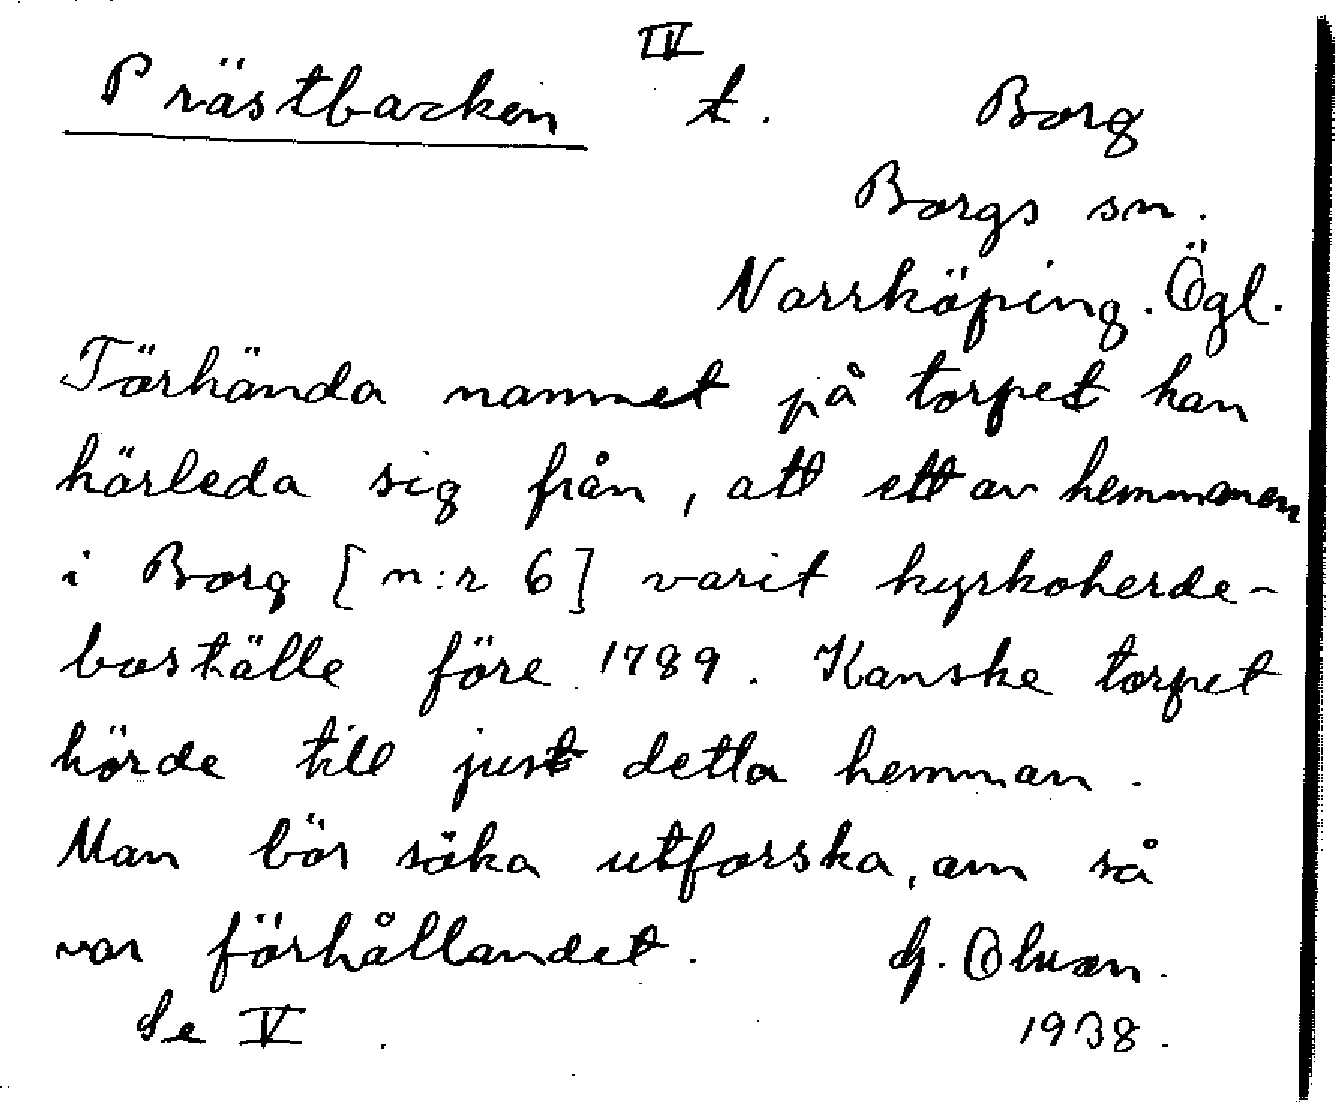 IV
Prästbacken t. Borg
Borgs sn.
Norrköping. Ögl.
Törhända namnet på torpet kan
härleda sig från, att ett av hemmanen
i Borg [n:r 6] varit kyrkoherde-
boställe före 1789. Kanske torpet
hörde till just detta hemman.
Man bör söka utforska, om så
var förhållandet. G.
Se V. 1938.